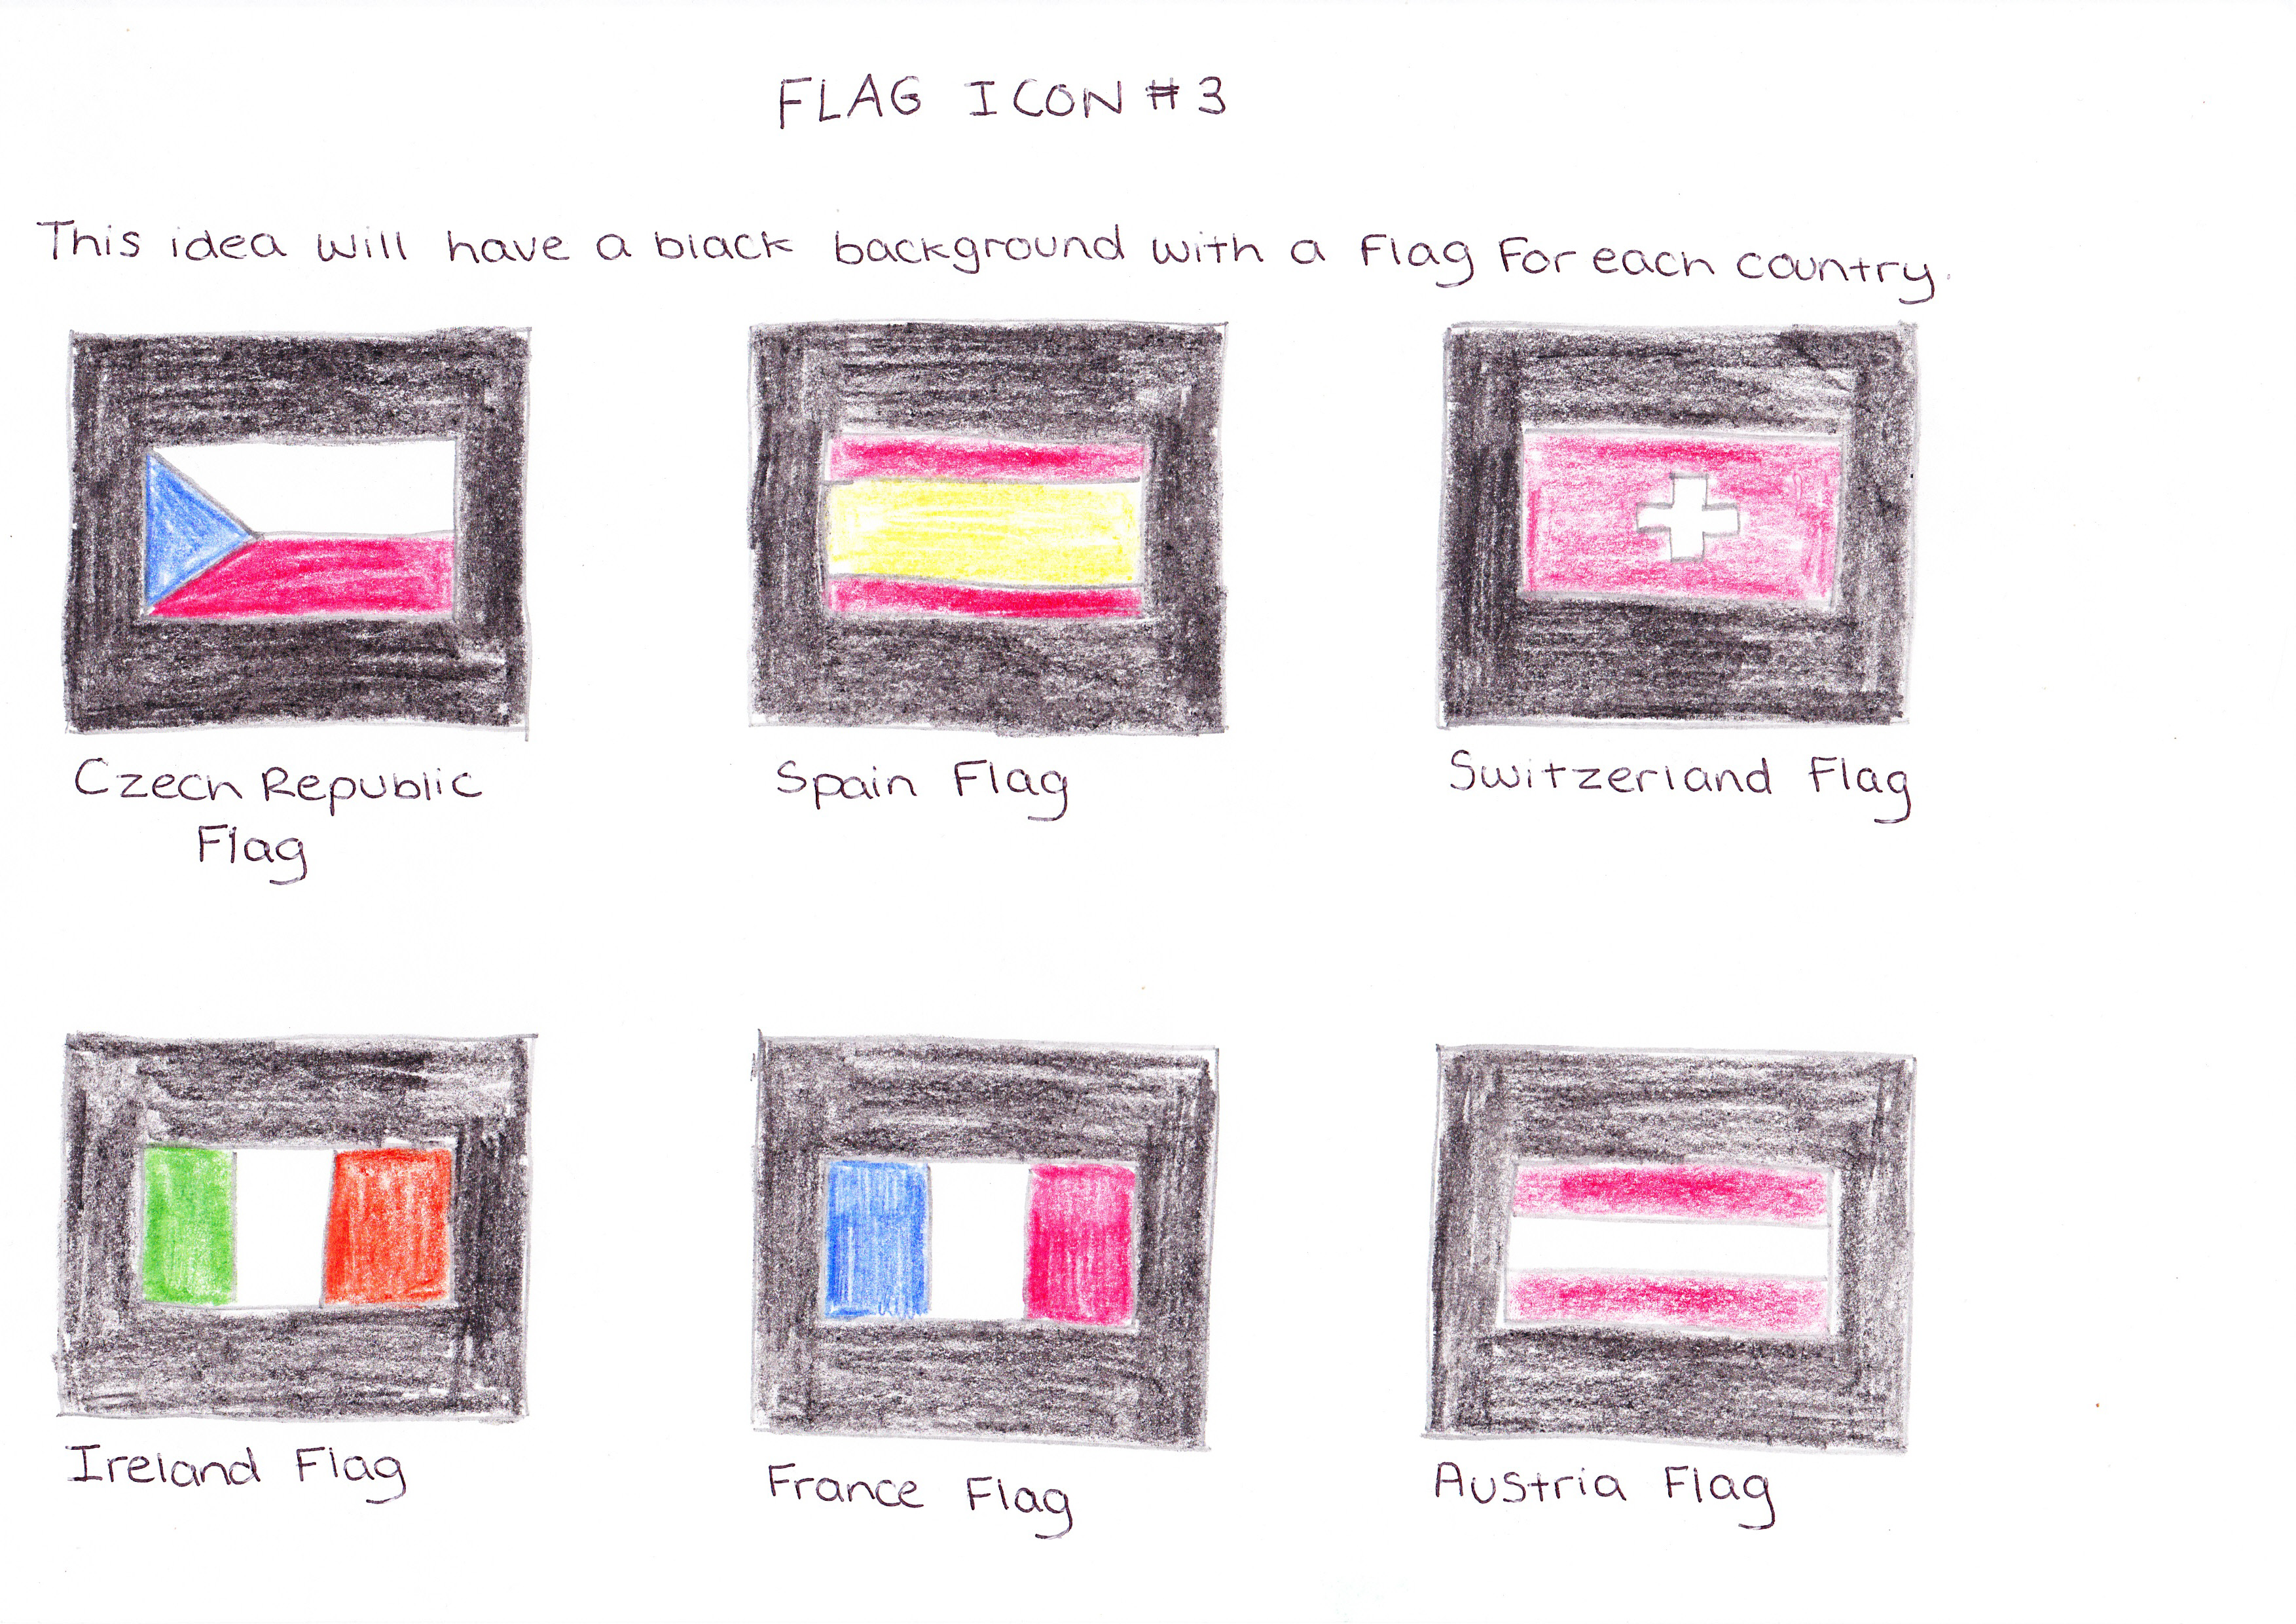 FLAG ICON #3
This idea will have a black background with a Flag For each country.
Czech Republic
Flag
Spain Flag
Switzerland Flag
Ireland Flag
France Flag
Austria Flag